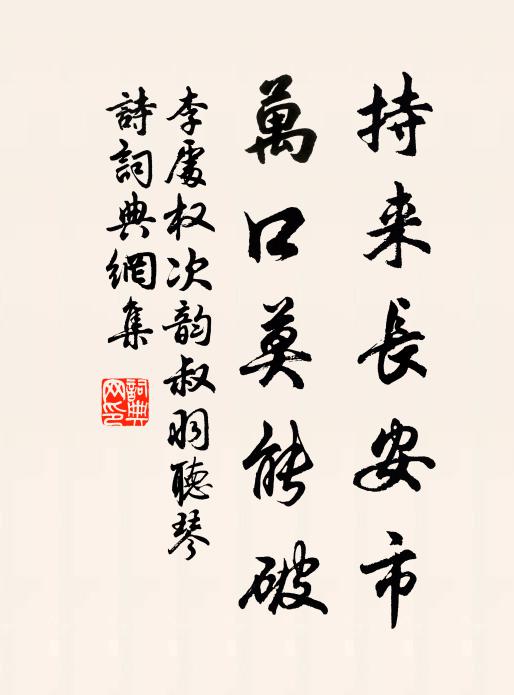 持来長安市
萬口莫能破
李處权次韵叔羽聽琴
詩詞典網集
詞典网印